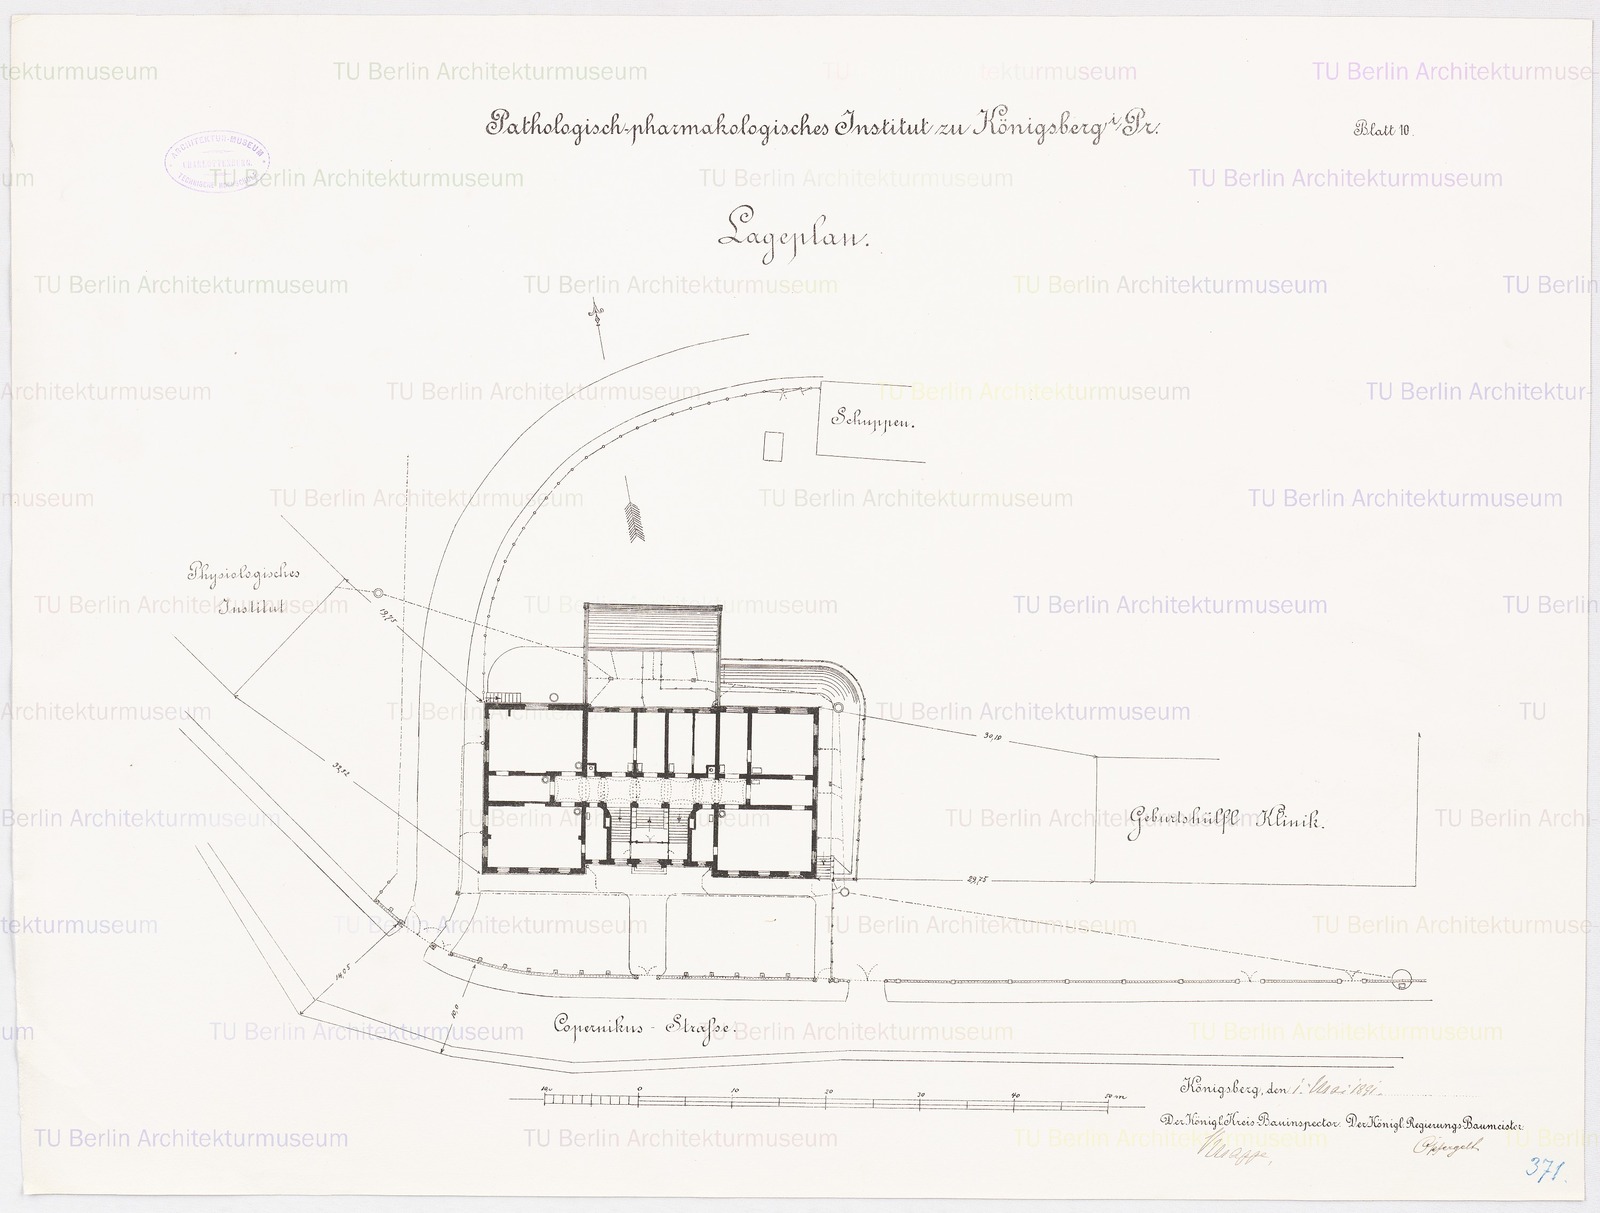 Pathologisch-pharmakologisches Institut zu Königsberg i/Pr.
Blatt 10.
ARCHITEKTUR-MUSEUM
TECHNISCHE
Lageplan.
N
Schuppen.
Physiologisches
Institut
19,75
32,52
30,10
Geburtshülfl Klinik.
29,75
14,05
10,0
Copernikus - Strasse.
10,0 0 10 20 30 40 50 m
Königsberg, den 1. Mai 1891.
Der Königl. Kreis-Bauinspector. Der Königl. Regierungs Baumeister
371.
TU Berlin Architekturmuseum